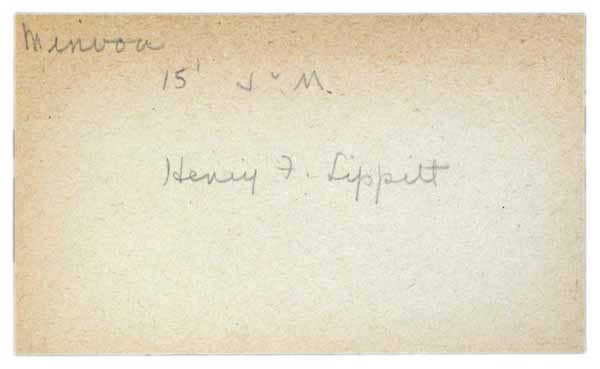 Minvoa
15' J & M.
Henry F. Lippitt